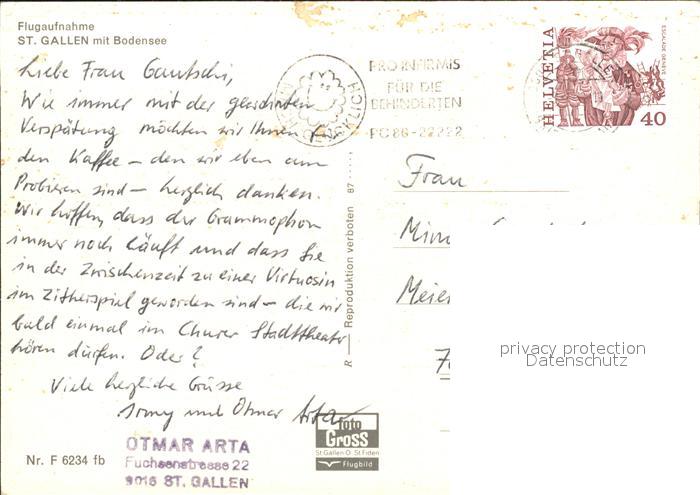 Flugaufnahme
ST. GALLEN mit Bodensee
Liebe Frau Gautschi,
Wie immer mit der gewohnten
Verspätung möchten wir Ihnen
den Kaffee – den wir eben am
Probieren sind – herzlich danken.
Wir hoffen, dass der Grammophon
immer noch läuft und dass Sie
in der Zwischenzeit zu einer Virtuosin
im Zitherspiel geworden sind – die wir
bald einmal im Churer Stadttheater
hören dürfen. Oder?
Viele herzliche Grüsse
und Otmar Arta
OTMAR ARTA
Fuchsenstrasse 22
9016 ST. GALLEN
Nr. F 6234 fb
foto
GROSS
St Gallen O St Fiden
Flugbild
R — Reproduktion verboten 87
PRO INFIRMIS
FÜR DIE
BEHINDERTEN
PC 86-22222
HELVETIA
ESCALADE GENÈVE
40
Frau
Meier
privacy protection
Datenschutz